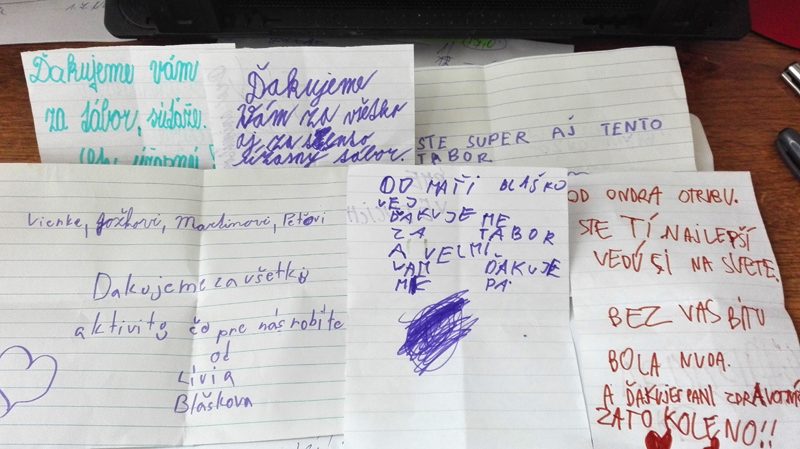 Ďakujeme vám
za tábor, súťaže.
Ďakujeme
Vám za všetko
aj za tento
úžasný tábor.
STE SUPER AJ TENTO
TÁBOR
Vierke, Jožkovi, Martinovi, Peťovi
Dakujeme za všetky
aktivity čo pre nás robíte
od
Lívia
Bláškova
OD MAŤI BLAŠKO
VEJ
ĎAKUJE ME
ZA TÁBOR
A VELMI
VAM ĎAKUJE
ME PA
OD ONDRA OTRUBU.
STE TÍ NAJLEPŠÍ
VEDÚCI NA SVETE.
BEZ VAS BI TU
BOLA NUDA.
A ĎAKUJEM PANI
ZA TO KOLENO!!